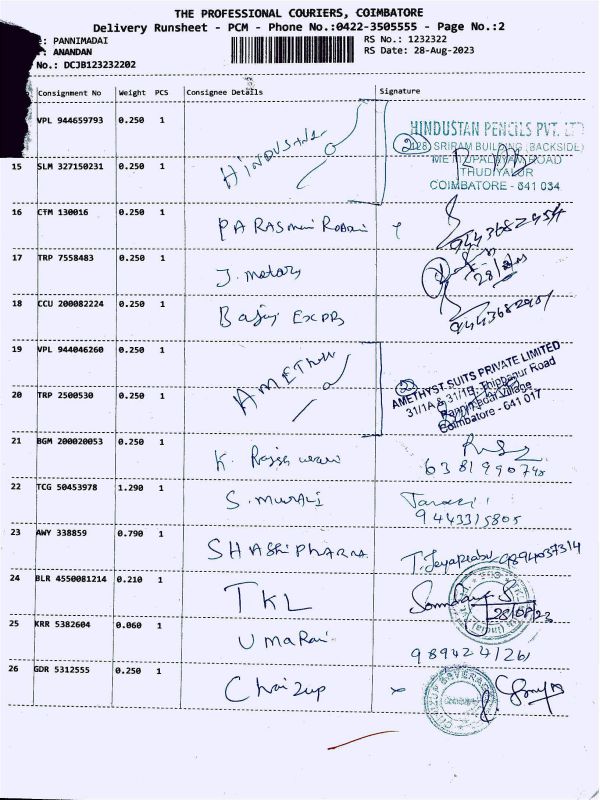 THE PROFESSIONAL COURIERS, COIMBATORE
Delivery Runsheet - PCM - Phone No.:0422-3505555 - Page No.:2
: PANNIMADAI
RS No.: 1232322
: ANANDAN
RS Date: 28-Aug-2023
No.: DCJB123232202
Consignment No Weight PCS Consignee Details Signature
VPL 944659793 0.250 1
HINDUSTAN PENCILS PVT. LTD
128, SRIRAM BUILDING (BACKSIDE)
METTUPALAYAM ROAD
THUDIYALUR
COIMBATORE - 641 034
15 SLM 327150231 0.250 1
16 CTM 130016 0.250 1
17 TRP 7558483 0.250 1 J. motors
18 CCU 200082224 0.250 1 Bajaj
19 VPL 944046260 0.250 1
AMETHYST SUITS PRIVATE LIMITED
31/1A & 31/1B, Thippanur Road
Pannimadai Village
Coimbatore - 641 017
20 TRP 2500530 0.250 1
21 BGM 200020053 0.250 1 K
22 TCG 50453978 1.290 1 S. MURALI
9443315805
23 AWY 338859 0.790 1 SHASRI PHARMA T. Jeyaprabu 9894037314
24 BLR 4550081214 0.210 1 TKL
28/08/23
25 KRR 5382604 0.060 1 UmaRani
9894224126
26 GDR 5312555 0.250 1 Chaizup